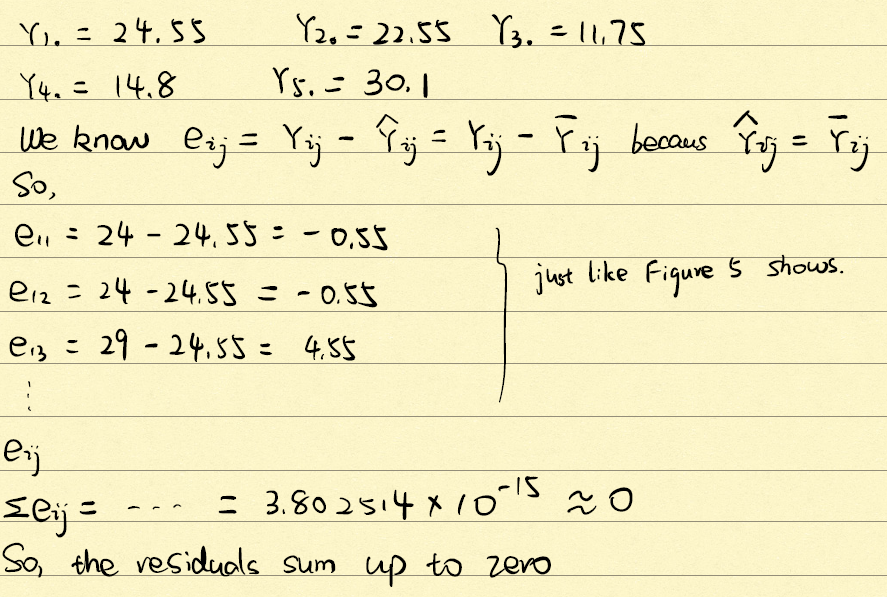 Y₁. = 24.55 Y₂. = 22.55 Y₃. = 11.75
Y₄. = 14.8 Y₅. = 30.1
We know eᵢⱼ = Yᵢⱼ - Ŷᵢⱼ = Yᵢⱼ - Ȳᵢⱼ becaus Ŷᵢⱼ = Ȳᵢⱼ
So,
e₁₁ = 24 - 24.55 = - 0.55
e₁₂ = 24 - 24.55 = - 0.55
just like Figure 5 shows.
e₁₃ = 29 - 24.55 = 4.55
⋮
eᵢⱼ
Σeᵢⱼ = ---- = 3.802514 × 10⁻¹⁵ ≈ 0
So, the residuals sum up to zero